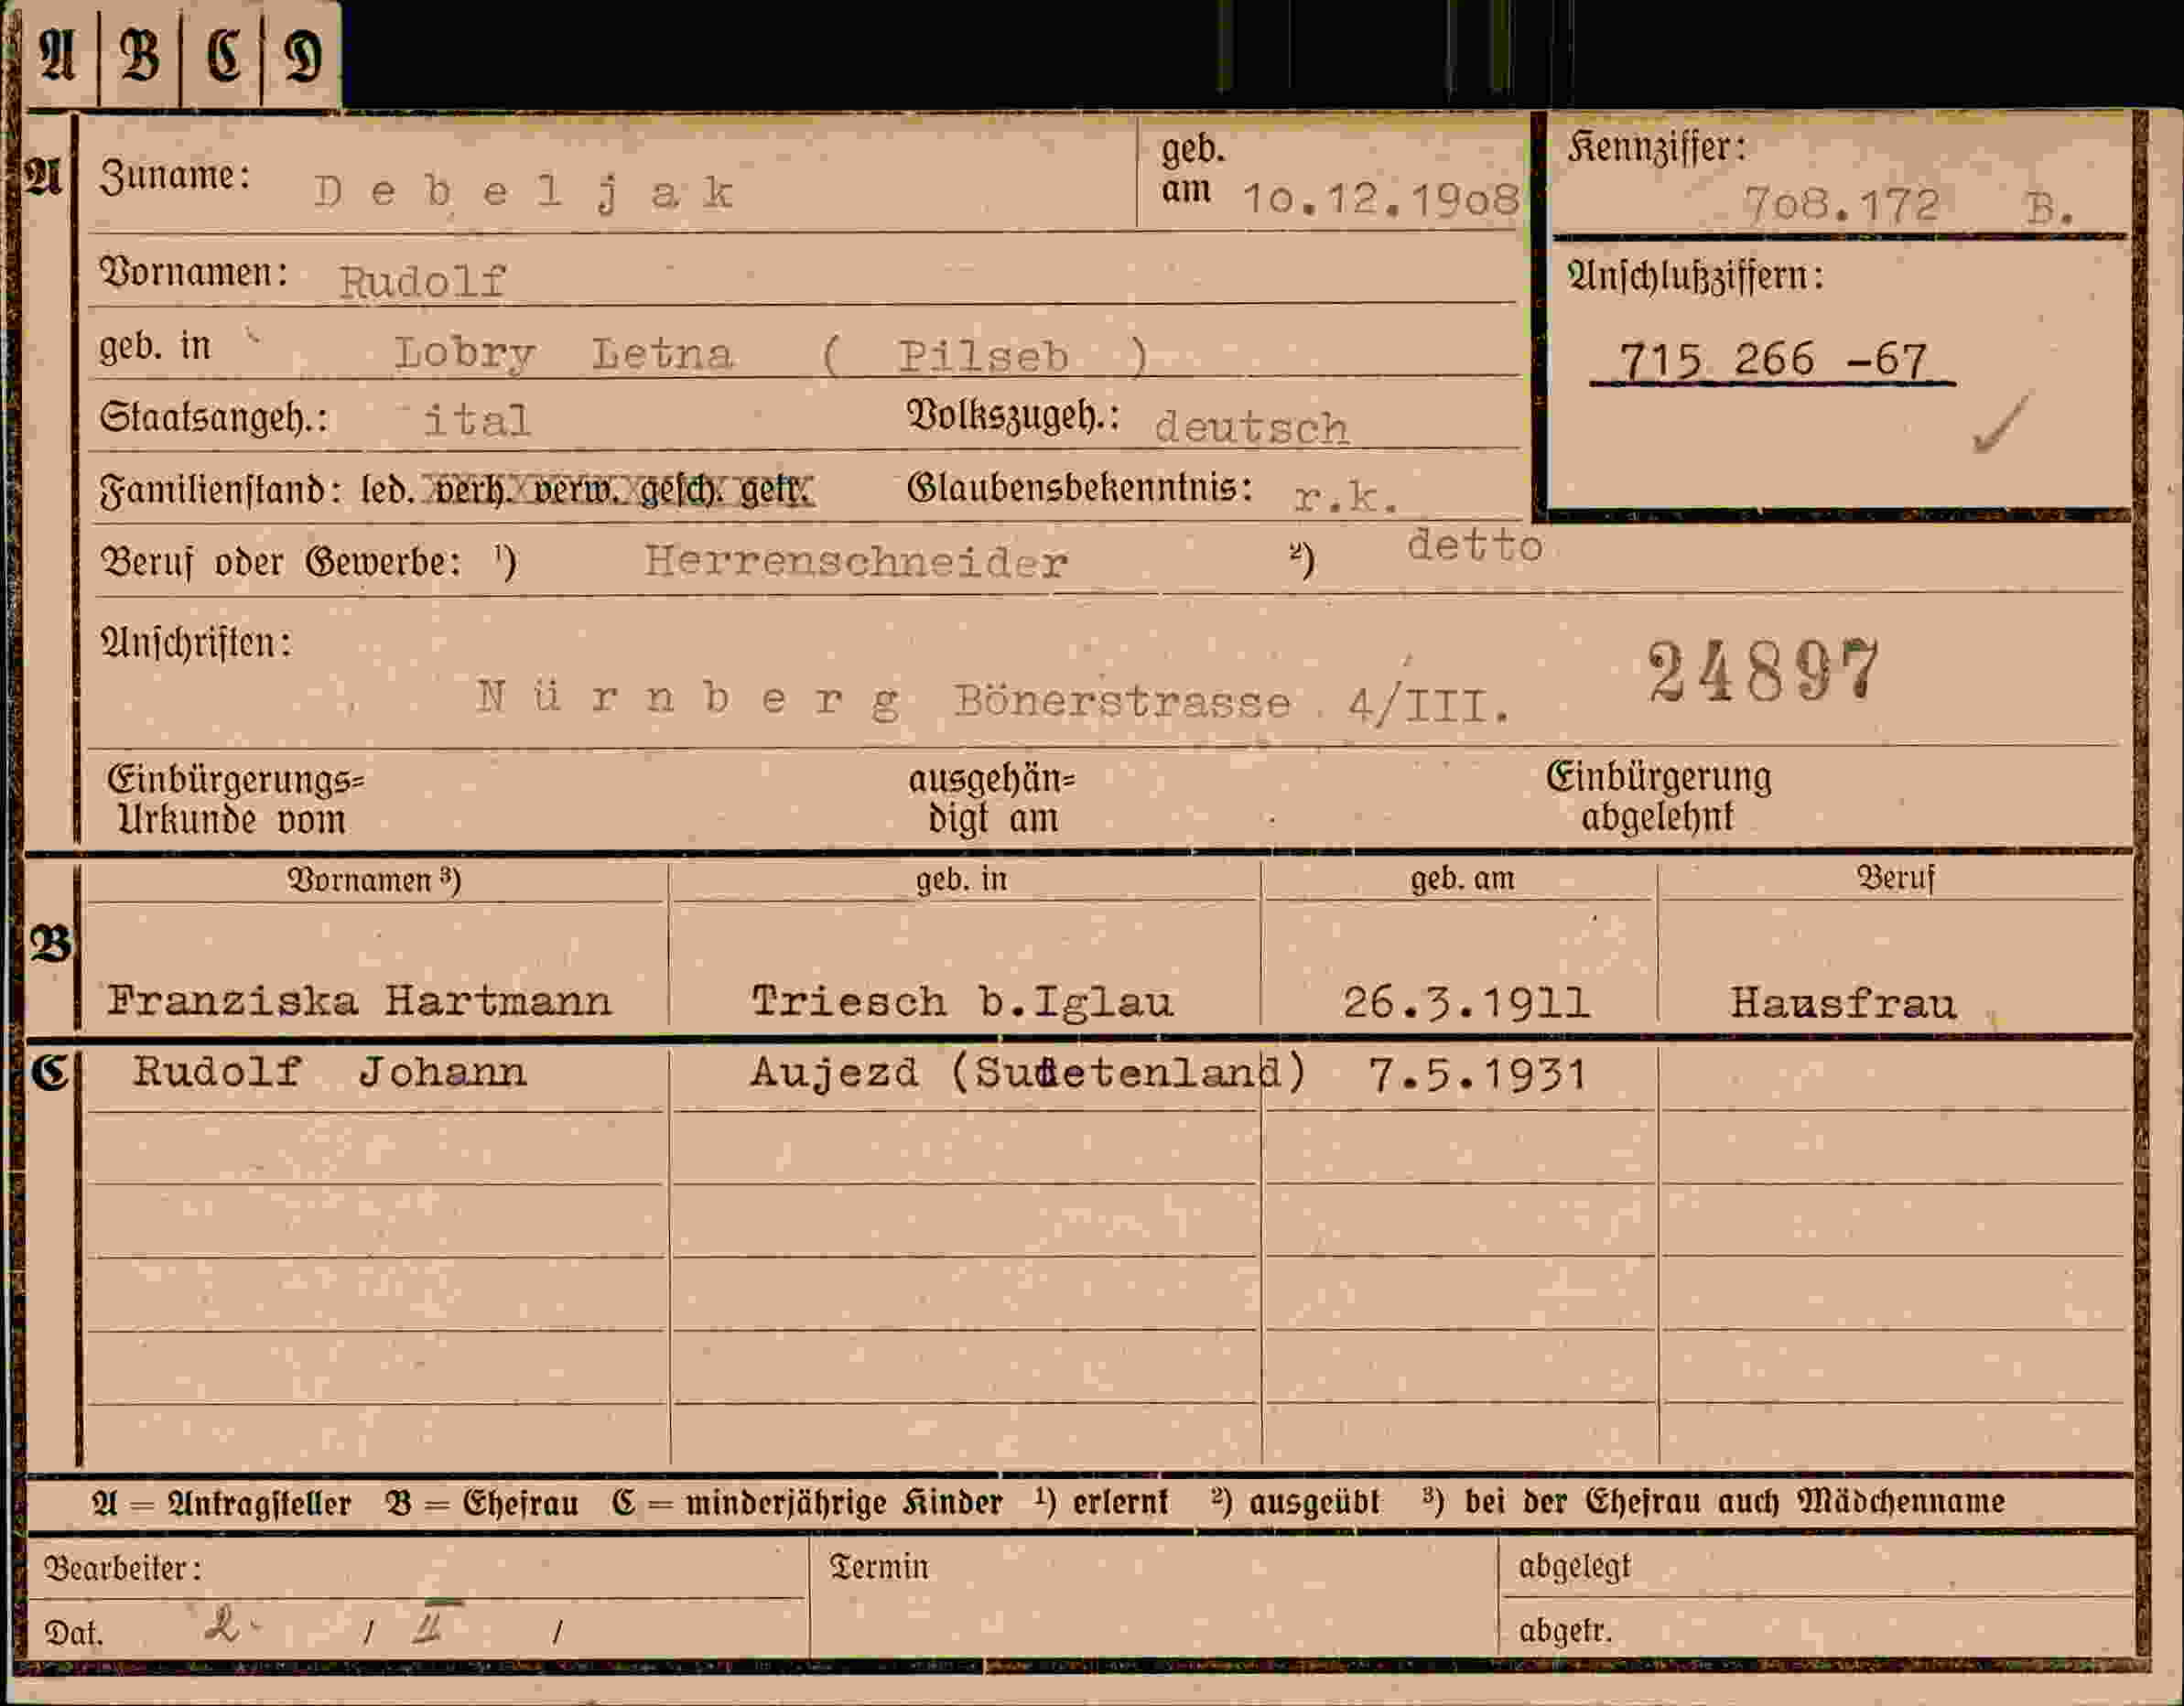 A | B | C | D
A Zuname: Debeljak geb. am 10.12.1908 Kennziffer: 708.172 B.
Vornamen: Rudolf Anschlußziffern:
geb. in Lobry Letna ( Pilseb ) 715 266 -67
Staatsangeh.: ital Volkszugeh.: deutsch
Familienstand: led. verh. verw. gesch. getr. Glaubensbekenntnis: r.k.
Beruf oder Gewerbe: ¹) Herrenschneider ²) detto
Anschriften: 24897
Nürnberg Bönerstrasse 4/III.
Einbürgerungs= ausgehän= Einbürgerung
Urkunde vom digt am abgelehnt
Vornamen ³) geb. in geb. am Beruf
B
Franziska Hartmann Triesch b.Iglau 26.3.1911 Hausfrau
C Rudolf Johann Aujezd (Sudetenland) 7.5.1931
A = Antragsteller B = Ehefrau C = minderjährige Kinder ¹) erlernt ²) ausgeübt ³) bei der Ehefrau auch Mädchenname
Bearbeiter: Termin abgelegt
Dat. 2. / II / abgetr.